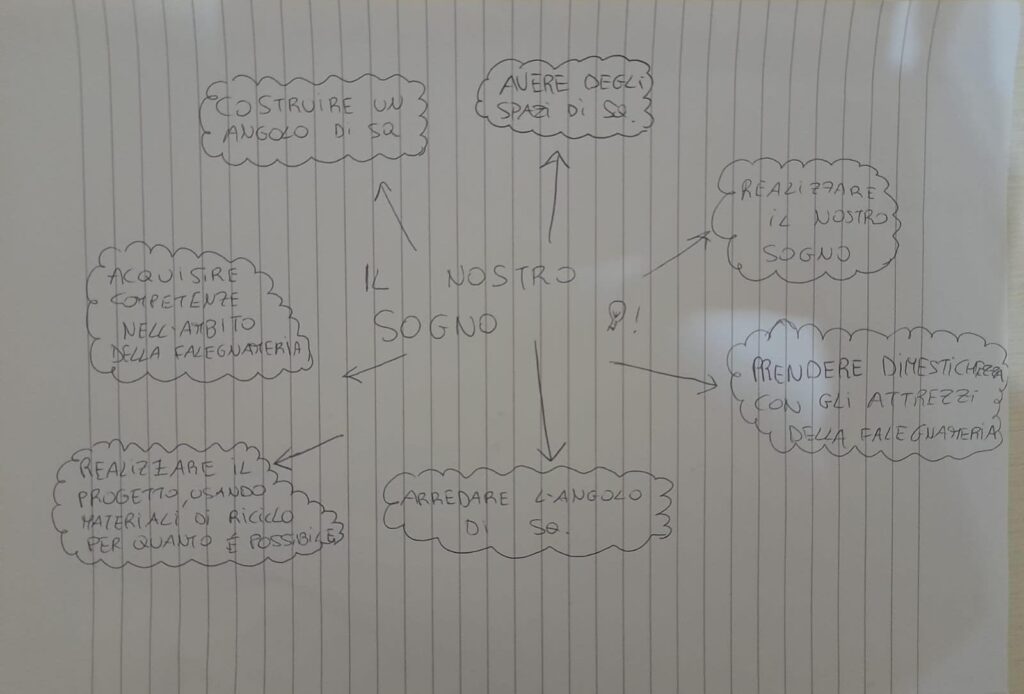 COSTRUIRE UN
ANGOLO Di SQ
AVERE DEGLi
SPAZi Di SQ.
REALIZZARE
iL NOSTRO
SOGNO
ACQUISIRE
COMPETENZE
NELL'AMBITO
DELLA FALEGNAMERIA
IL NOSTRO
SOGNO !
PRENDERE DIMESTICHEZZA
CON GLi ATTREZZi
DELLA FALEGNAMERIA
REALIZZARE iL
PROGETTO, USANDO
MATERIALi Di RiCiCLO
PER QUANTO È POSSIBILE
ARREDARE L'ANGOLO
Di SQ.